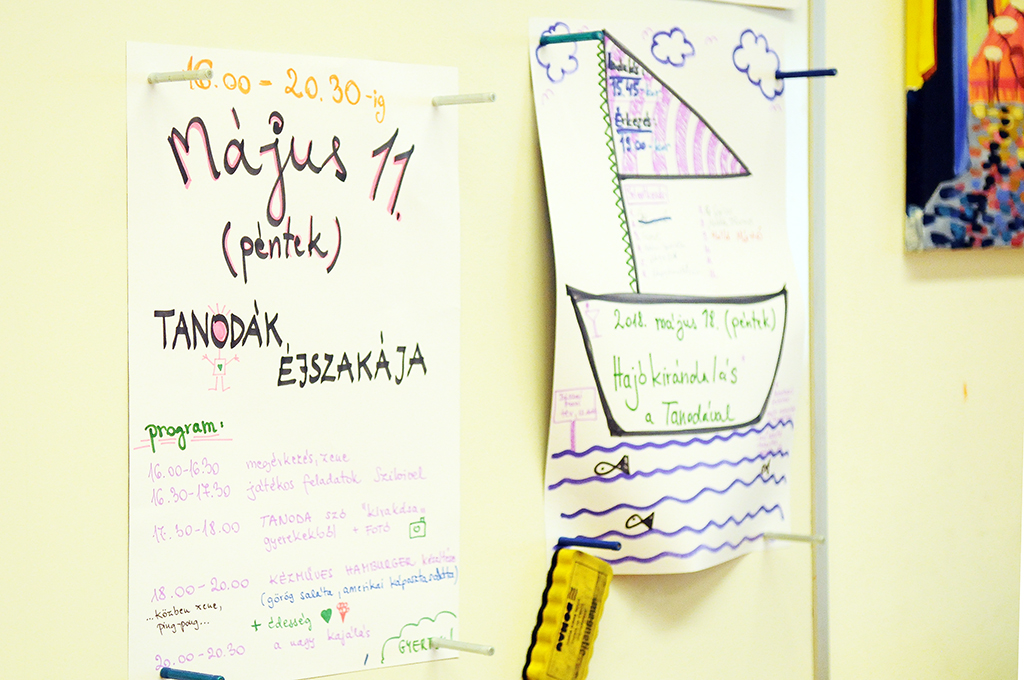 16.00 - 20.30-ig
Május 11.
(péntek)
TANODÁK
ÉJSZAKÁJA
program:
16.00-16.30 megérkezés, zene
16.30-17.30 játékos feladatok
17.30-18.00 TANODA szó "kirakása"
gyerekekből + FOTÓ
18.00-20.00 KÉZMŰVES HAMBURGER
(görög saláta, amerikai káposztasaláta)
...közben zene,
ping-pong...
+ édesség
20.00-20.30 a nagy kajálás
GYERE!
Indulás:
15.45-kor
Érkezés:
19.00-kor
2018. május 18. (péntek)
"Hajókirándulás"
a Tanodával
DONAU